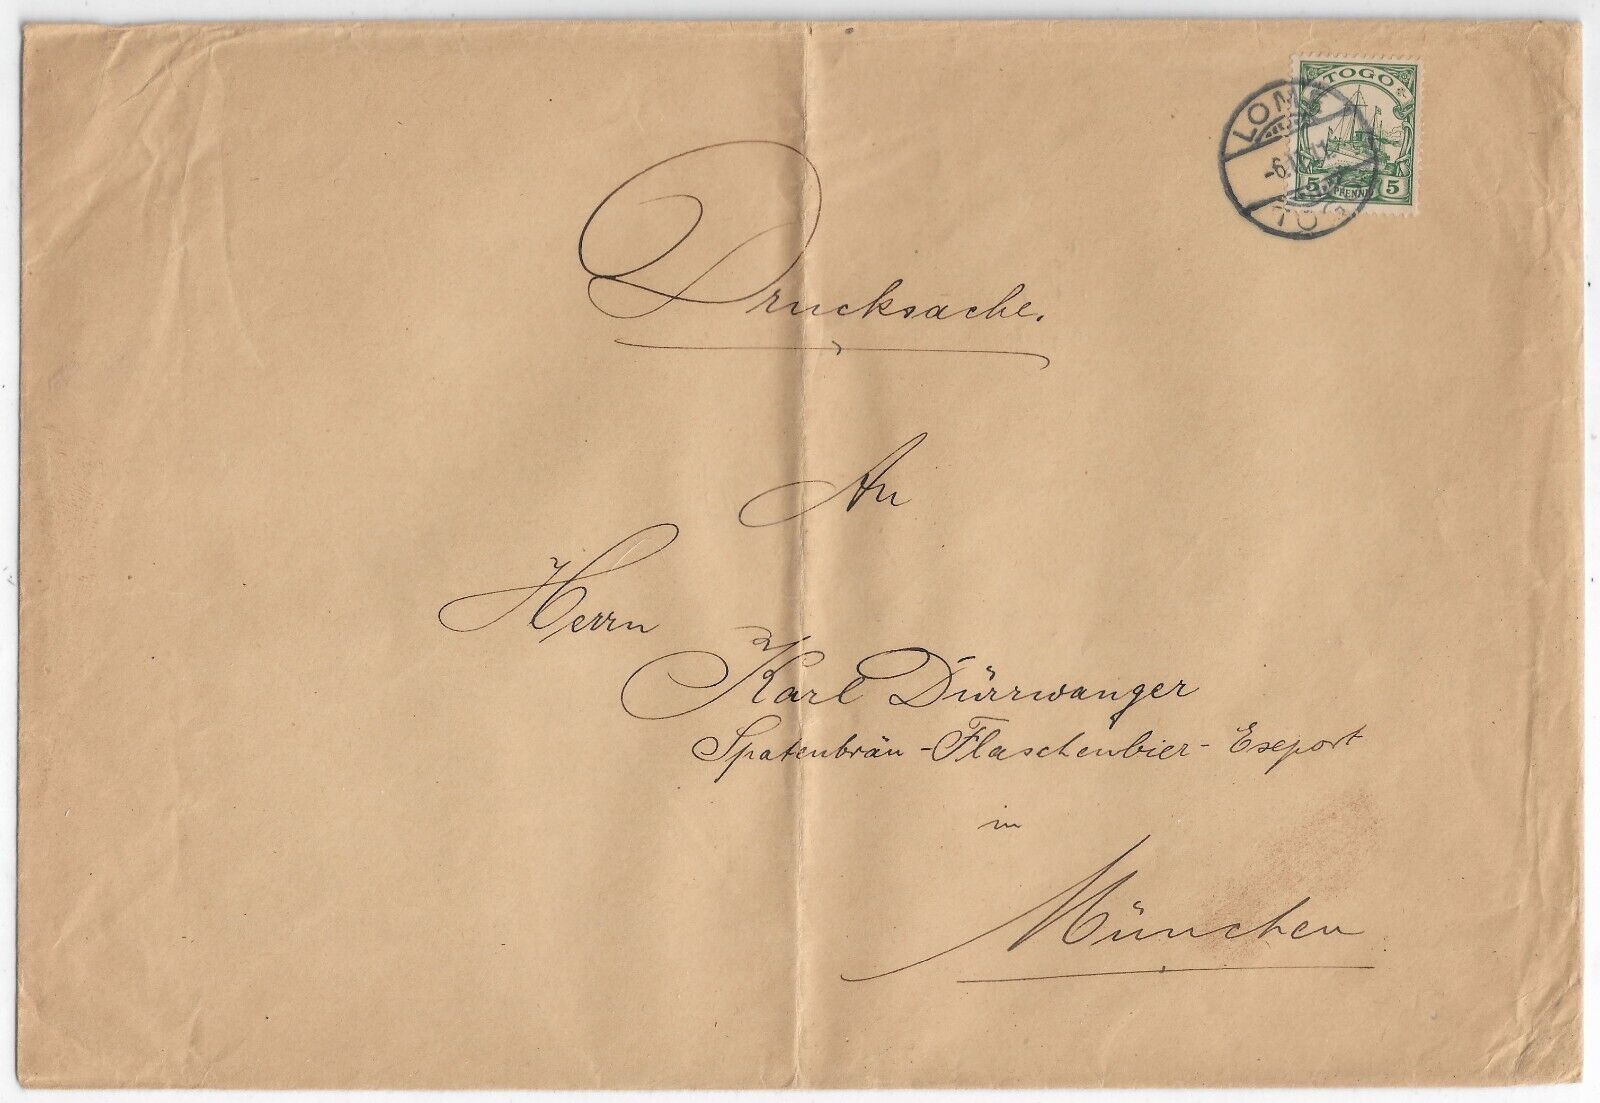 TOGO
5 PFENNIG 5
LOME
TOGO
Drucksache.
An
Herrn
Karl Dürrwanger
Spatenbräu-Flaschenbier-Export
in
München